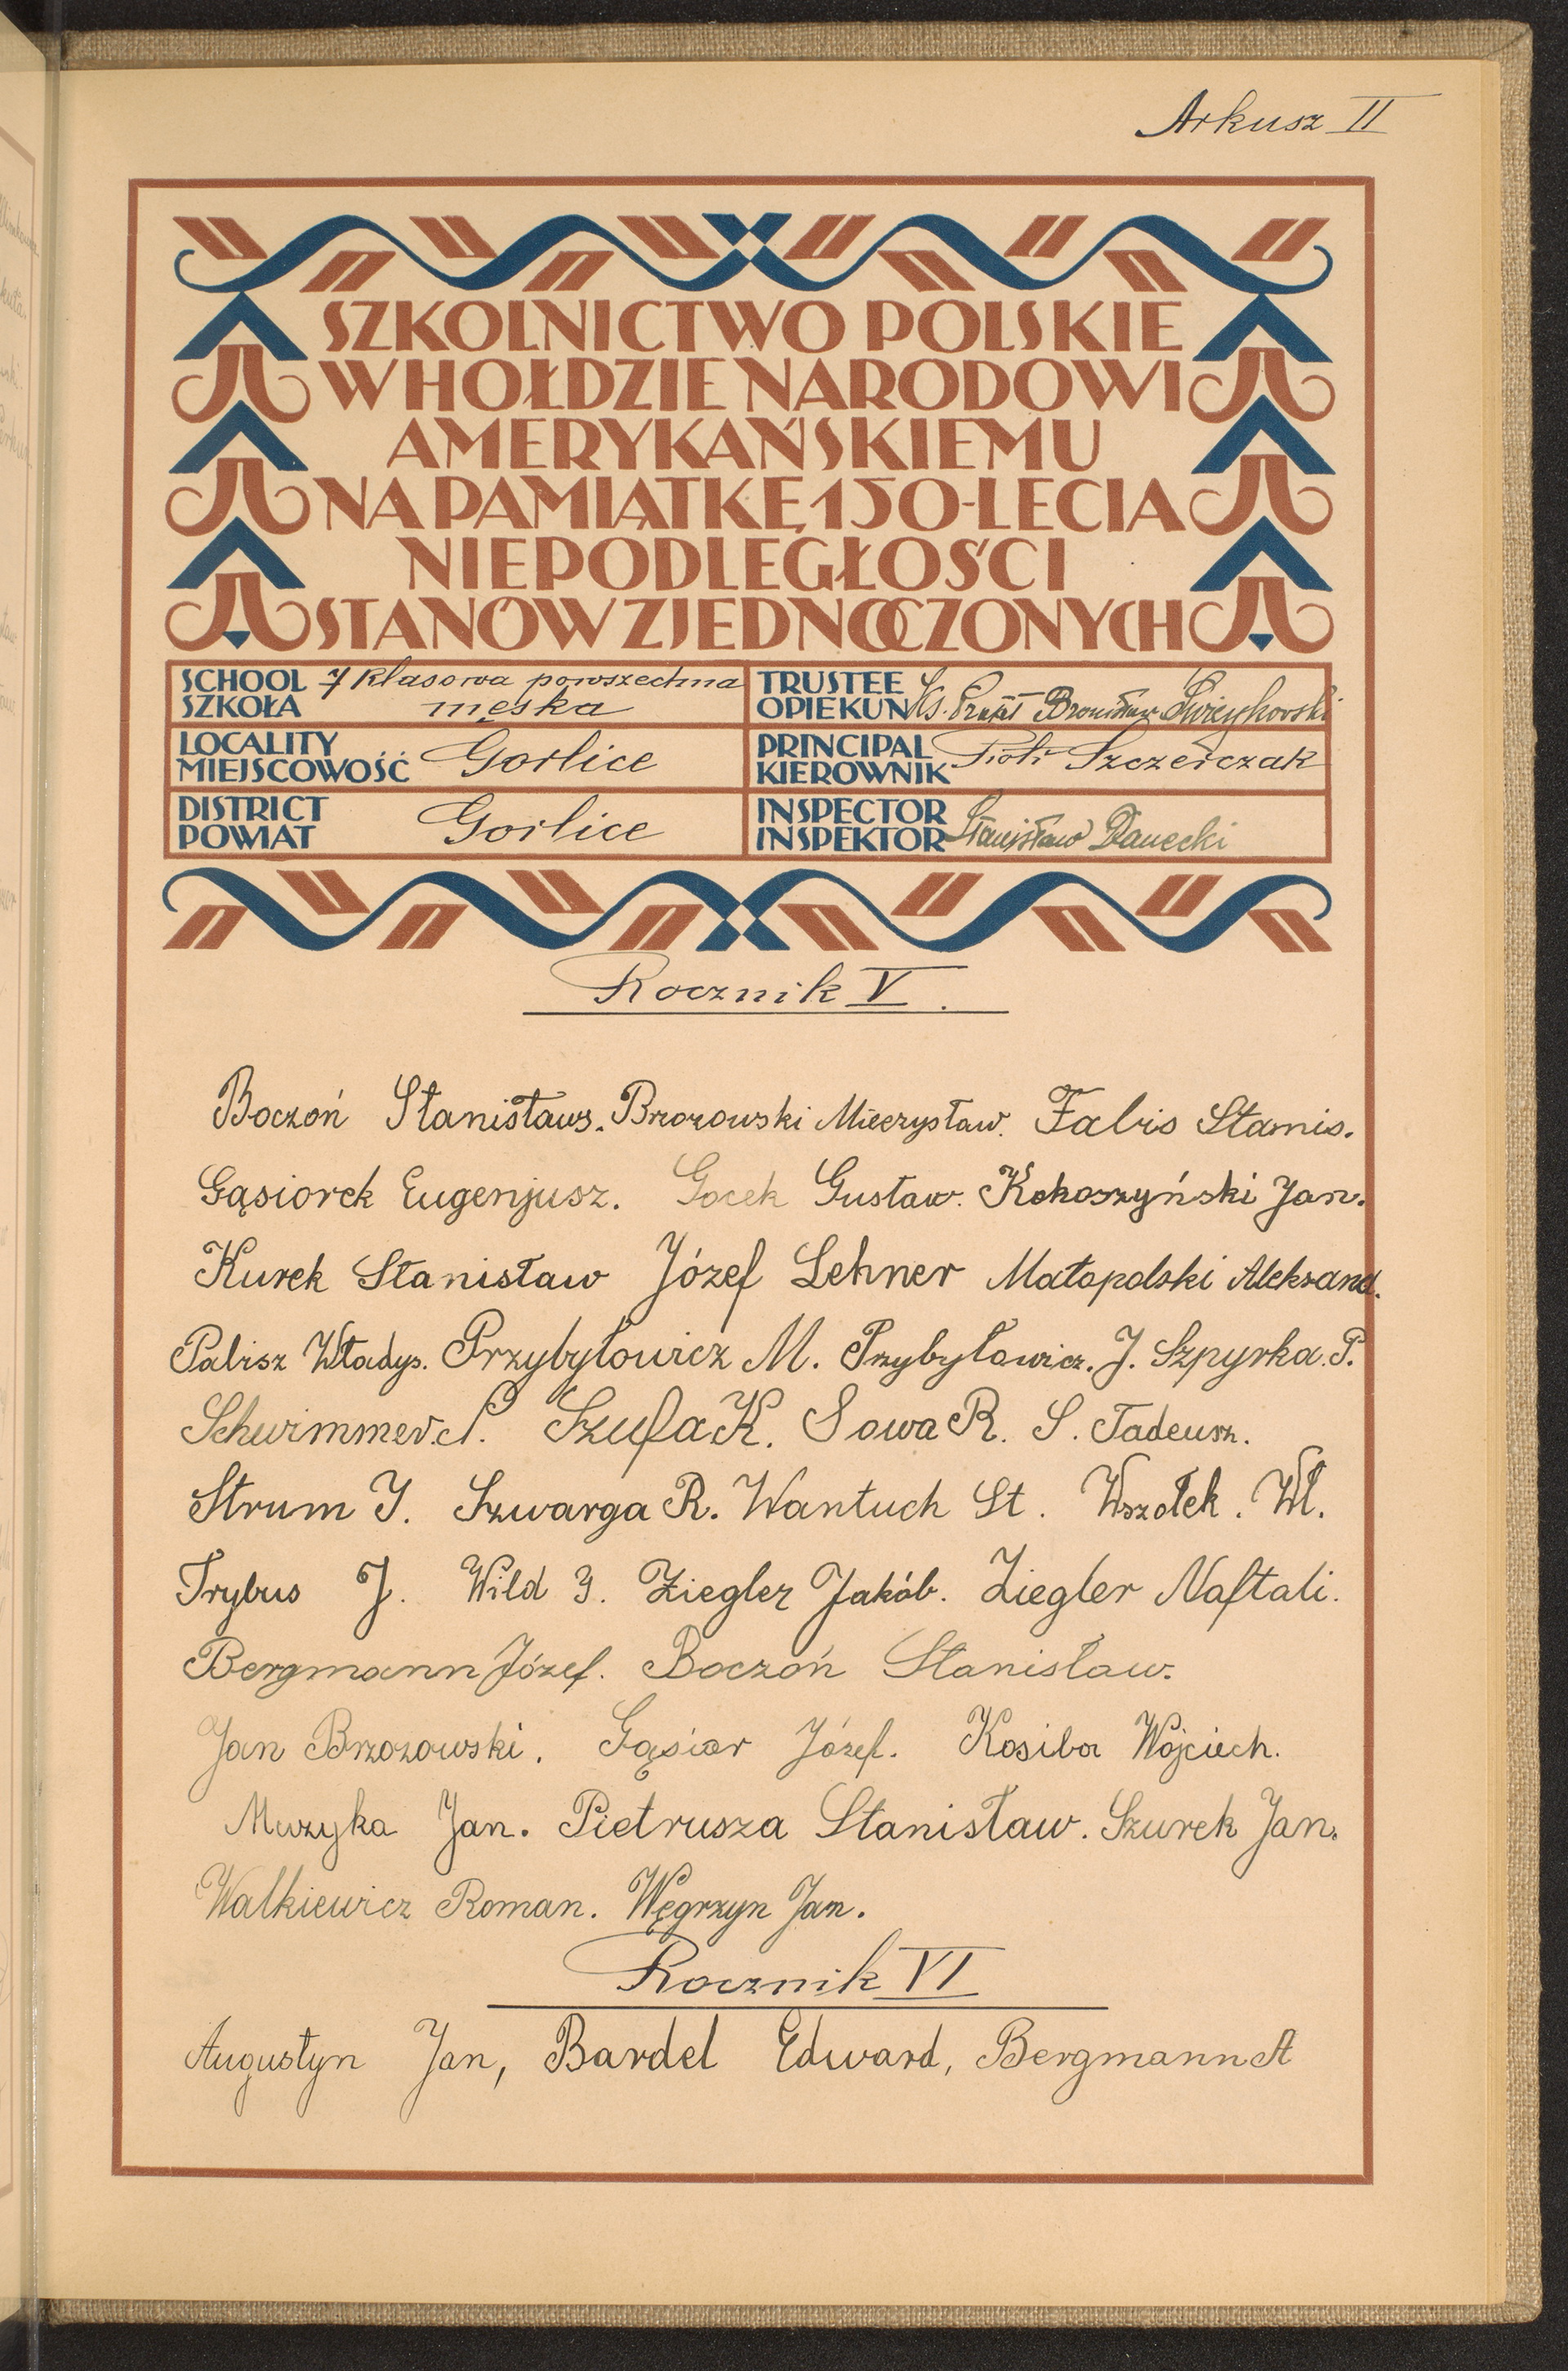 Arkusz II
SZKOLNICTWO POLSKIE
W HOŁDZIE NARODOWI
AMERYKAŃSKIEMU
NA PAMIĄTKĘ 150-LECIA
NIEPODLEGŁOŚCI
STANÓW ZJEDNOCZONYCH
SCHOOL
SZKOŁA
7 klasowa powszechna
męska
TRUSTEE
OPIEKUN
Ks. Bronisław Świeykowski
LOCALITY
MIEJSCOWOŚĆ
Gorlice
PRINCIPAL
KIEROWNIK
Piotr Szczerczak
DISTRICT
POWIAT
Gorlice
INSPECTOR
INSPEKTOR
Stanisław Danecki
Rocznik V.
Boczoń Stanisław. Brzozowski Mieczysław. Fabis Stanis.
Gąsiorek Eugenjusz. Gocek Gustaw. Kokoszyński Jan.
Kurek Stanisław Józef Lehner Małopolski Aleksand.
Palisz Władys. Przybyłowicz M. Przybyłowicz. J. Szpyrka. P.
Schwimmer. S. Szufa K. Sowa R. S. Tadeusz.
Strum J. Szwarga R. Wantuch St. Wszołek. Wł.
Trybus J. Wild J. Ziegler Jakób. Ziegler Naftali.
Bergmann Józef. Boczoń Stanisław.
Jan Brzozowski. Gąsior Józef. Kosiba Wojciech.
Muzyka Jan. Pietrusza Stanisław. Szurek Jan.
Walkiewicz Roman. Węgrzyn Jan.
Rocznik VI
Augustyn Jan, Bardel Edward, Bergmann A